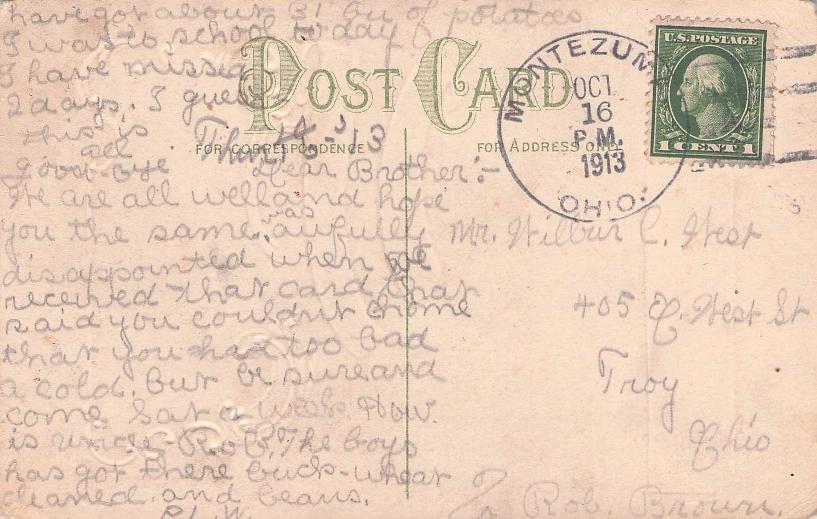 have got about 31 bu of potatoes
I was to school today
I have missed
2 days. I guess
this is
all
good-bye
POST CARD
FOR CORRESPONDENCE
FOR ADDRESS ONLY
MONTEZUMA
OCT
16
P.M.
1913
OHIO.
U.S. POSTAGE
1 CENT 1
Dear Brother:-
We are all well and hope
you the same. was aufully
disappointed when we
received that card that
said you couldn't come
that you had too bad
a cold. but be sure and
come Sat a week. How
is uncle Rob. The boys
has got there buck-wheat
cleaned and beans.
Mr. Wilbur C. West
405 E. West St
Troy
Ohio
Rob. Brown.